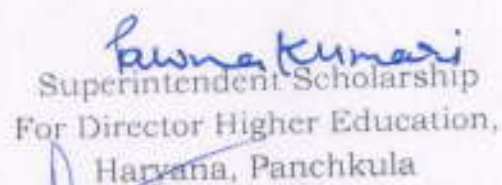 Kumari
Superintendent Scholarship
For Director Higher Education,
Haryana, Panchkula